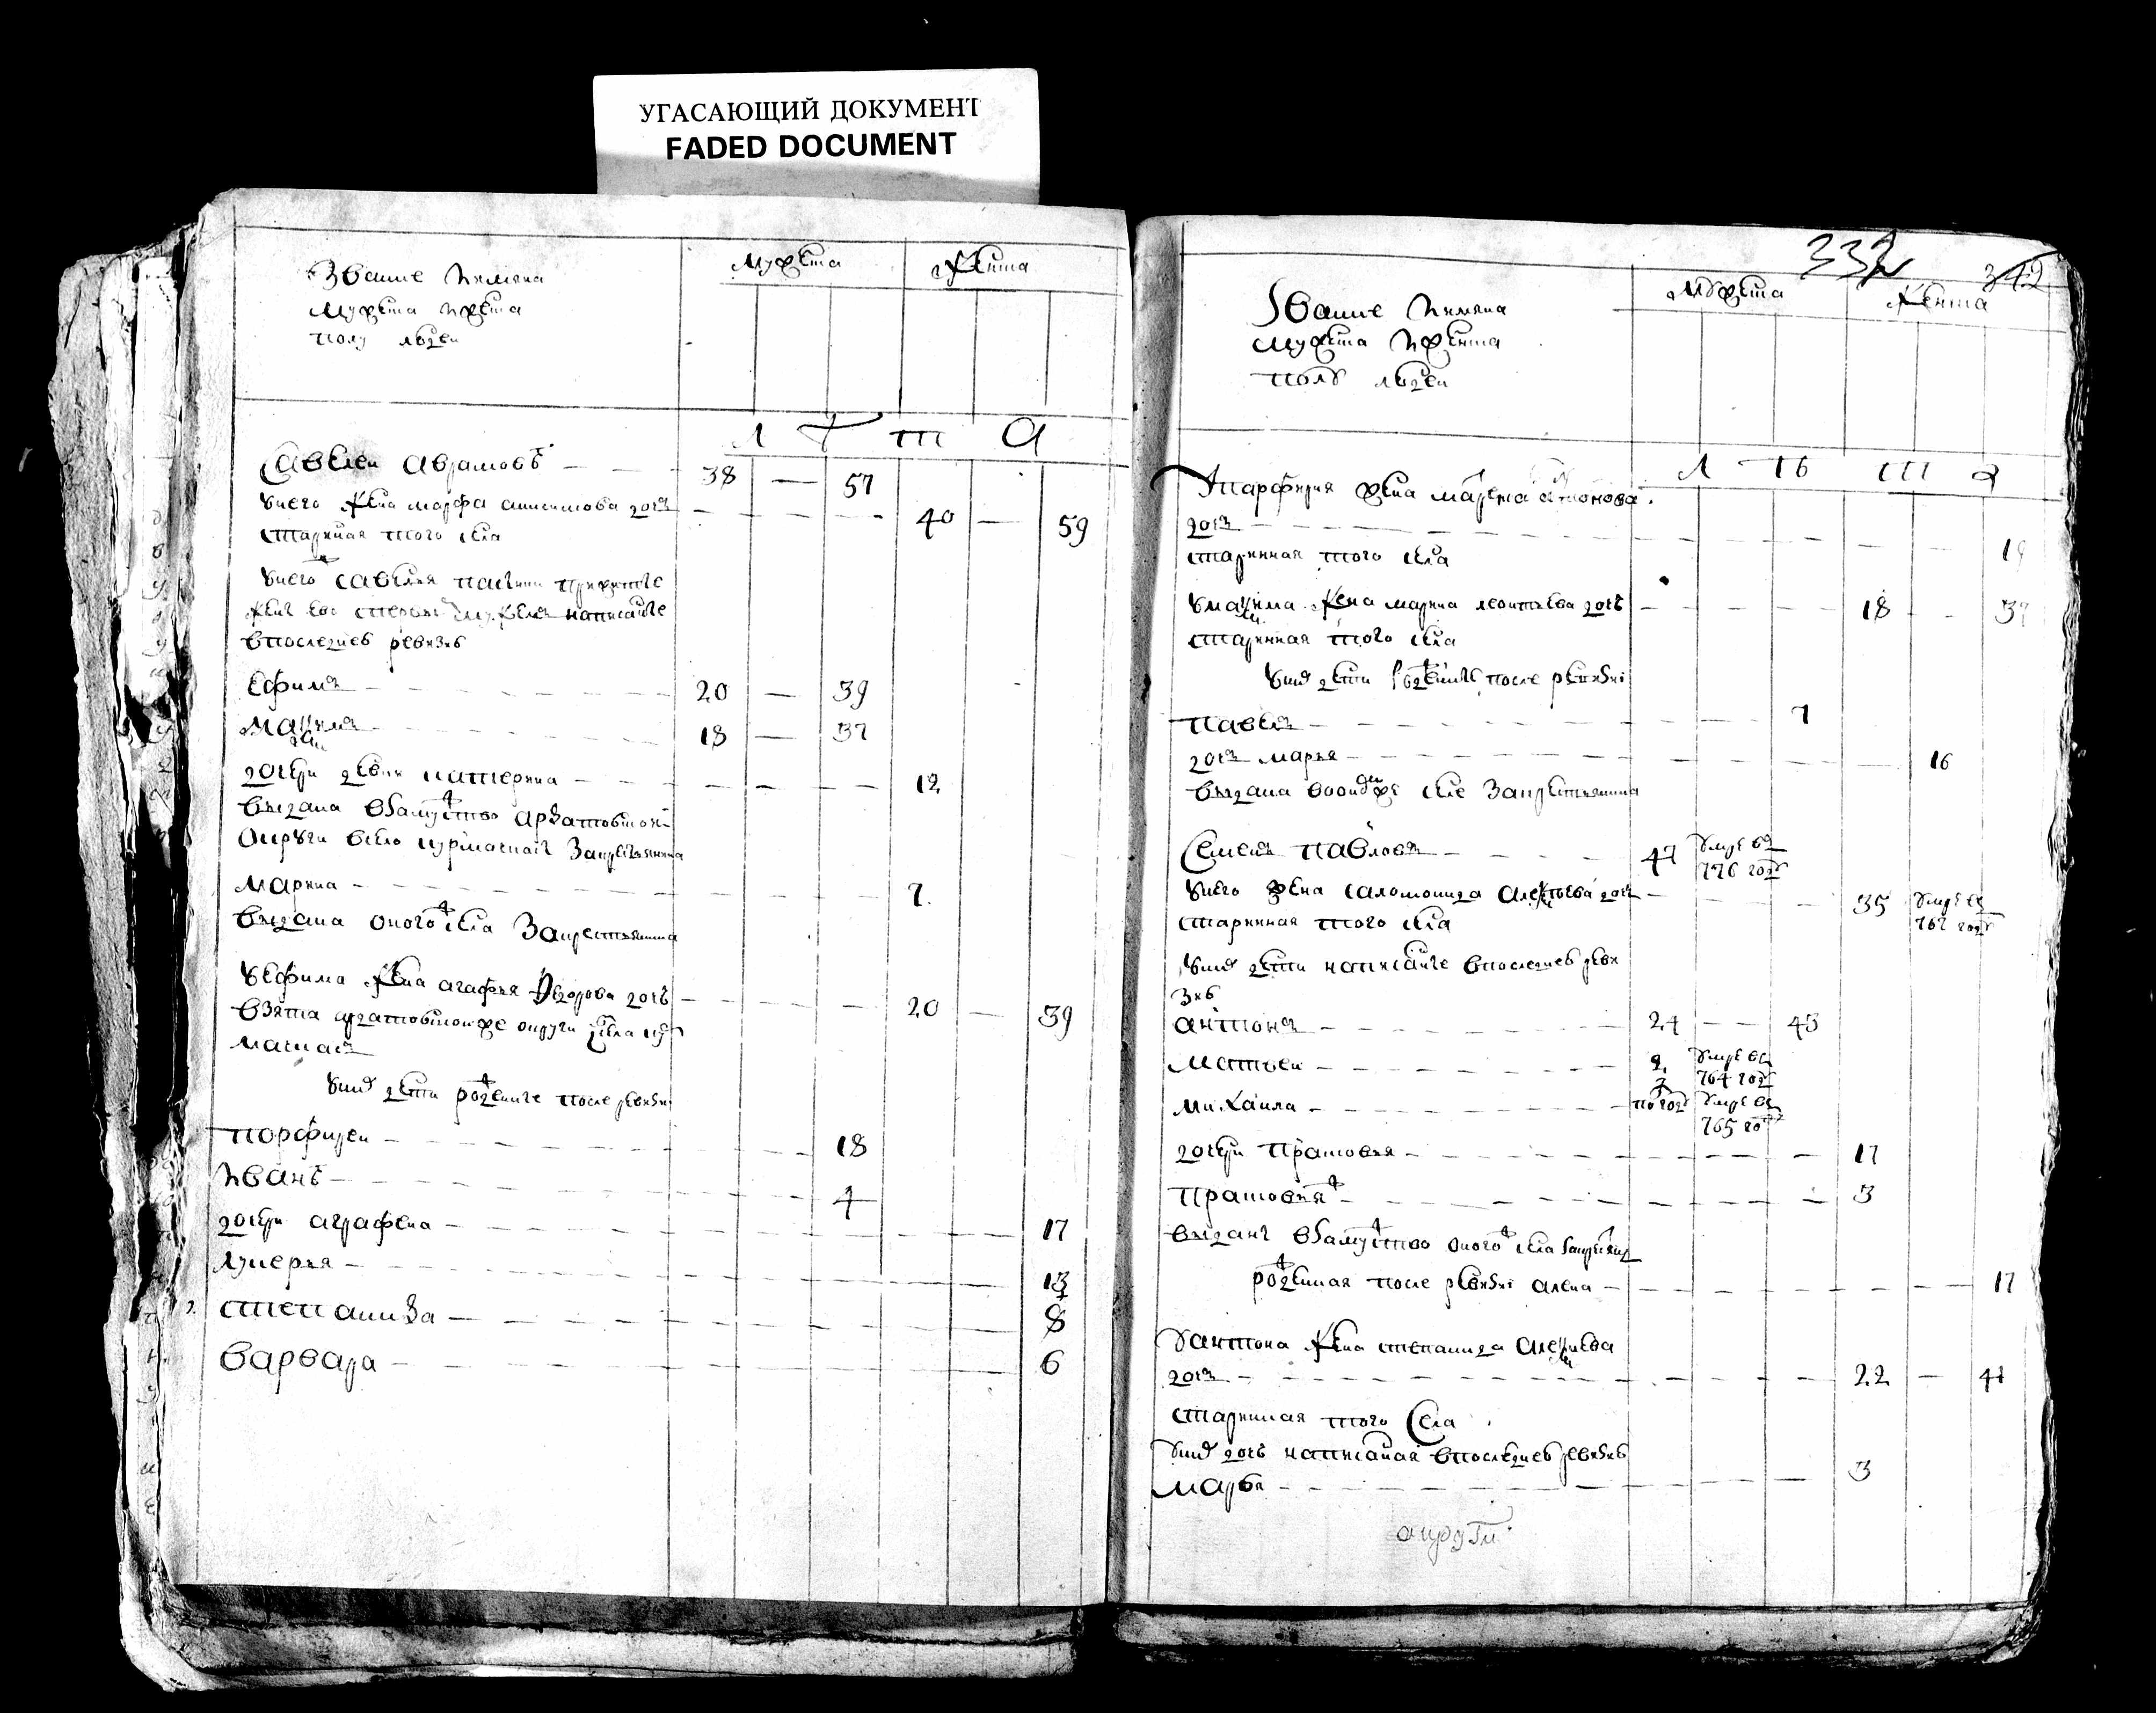 УГАСАЮЩИЙ ДОКУМЕНТ
FADED DOCUMENT
Звание и имяна
мужеска и женска
полу людеи
мужеска
женска
л ѣ т а
Савелеи Аврамовъ 38 — 57
у него жена марфа анисимова дочь 40 — 59
старинная того села
у него савелья пасынки прижитые
написаные
в последнеи ревизиѣ
Ефимъ 20 — 39
Максимъ 18 — 37
дочери девки катерина 12
выдана в замужство арзатовскои
округи в село курмачкас за крестьянина
марина 7
выдана оного села за крестьянина
у ефима жена агафья Федорова дочь 20 — 39
взята ардатовской же округи села кур
мачкас
у них дети рожденные после ревизии
порфиреи 18
Иванъ 4
дочери аграфена 17
лукерья 13
степанида 8
варвара 6
332
342
Звание и имяна
мужеска и женска
полу людеи
мужеска
женска
л ѣ т а
У парфирия жена матрена антонова
дочь 19
старинная того села
у максима жена марина леонтьева дочь 18 - 37
старинная того села
у них дети рожденные после ревизии
павелъ 7
дочь марья 16
выдана в оном же селе за крестьянина
Семенъ павловъ 47 умре въ
776 годе
у него жена саломонида алексеева дочь 35 умре въ
767 годе
старинная того села
у них дети написаные в последнеи реви
зиѣ
антонъ 24 — 43
матвеи 9 умре въ
764 годе
михаила полгода умре въ
765 годе
дочери прасковья 17
прасковья 3
выданы в замужство оного села за крестьянъ
рожденная после ревизии алена 17
у антона жена степанида алексеева
дочь 22 — 41
старинная того села
у них дочь написаная в последнеи ревизиѣ
марья 3
округи